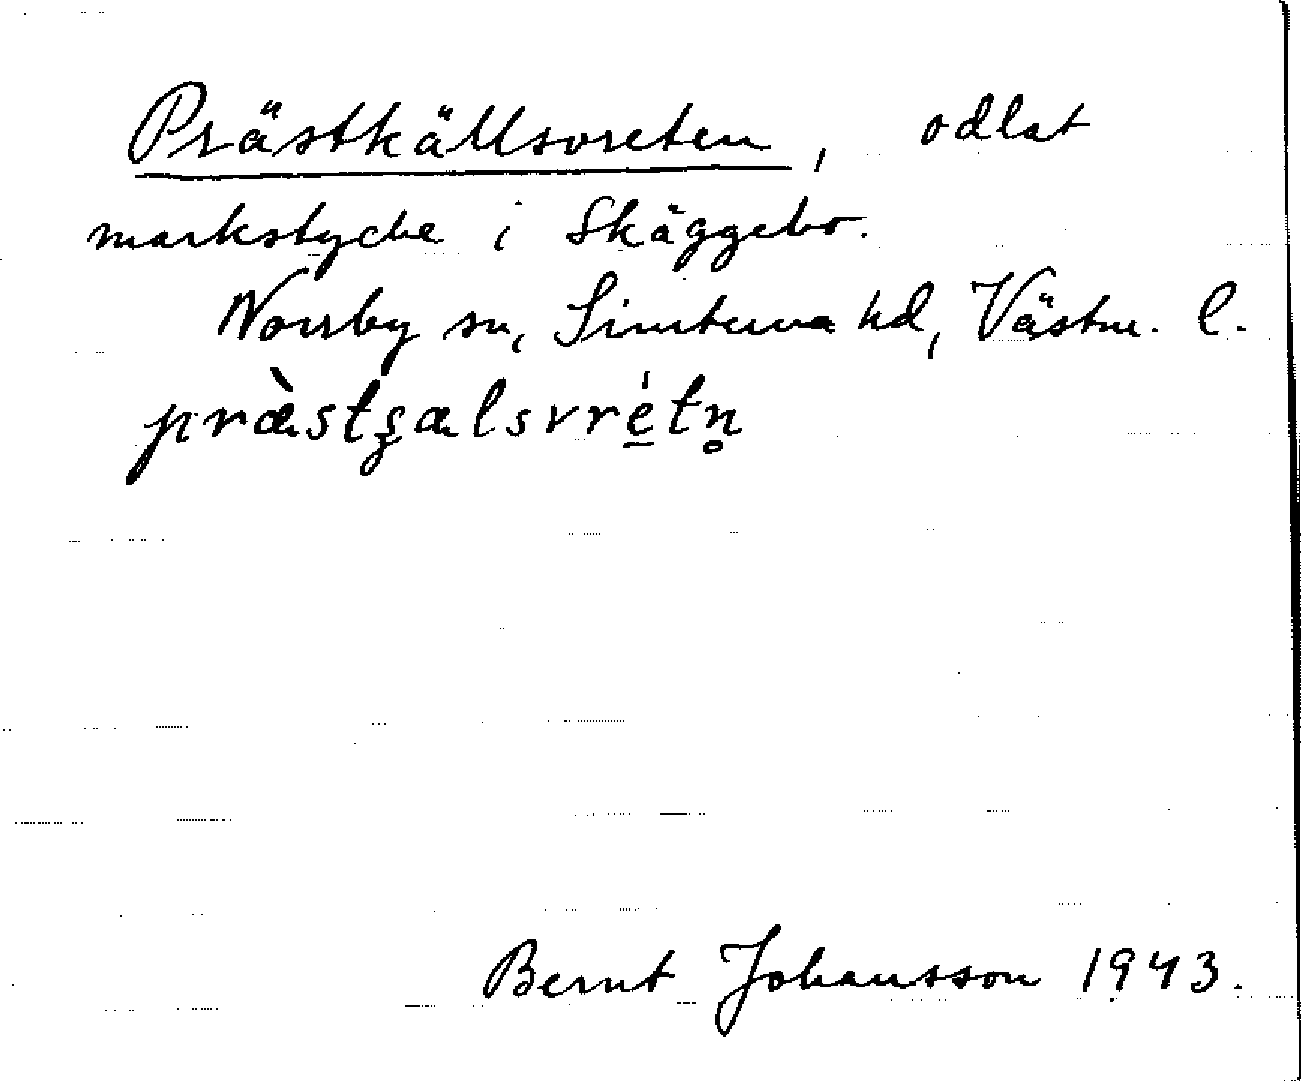 Prästkällsvreten, odlat
markstycke i Skäggebo.
Norrby sn, Simtuna hd, Västm. l.
præ̀stʂælsvré̱tn̥
Bernt Johansson 1943.